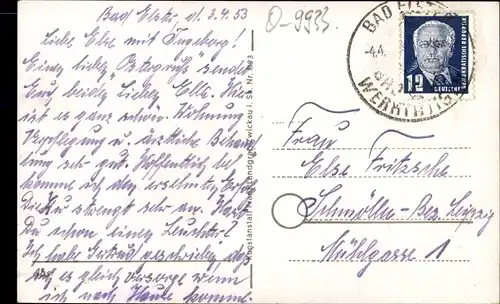 Bad Elster, d. 3.4.53
Liebe Else mit Ingeborg!
Einen lieben Ostergruß sendet
Euch beiden lieben Elle. Hier
ist es ganz schön. Wohnung
Verpflegung u. ärztliche Behand
lung sehr gut. Hoffentlich be
komme ich den ersehnten Erfolg
Die Kur strengt sehr an. Hast
Du schon einen
Ich habe geschrieben, daß
es gleich besorge wenn
ich nach Hause komme.
O-9933.
BAD ELSTER
-4.4.
WERKTÄTIGEN
12
DEUTSCHE DEMOKRATISCHE REPUBLIK
Frau
Else Fritzsche
Schmölln-Bez. Leipzig
Mühlgasse 1